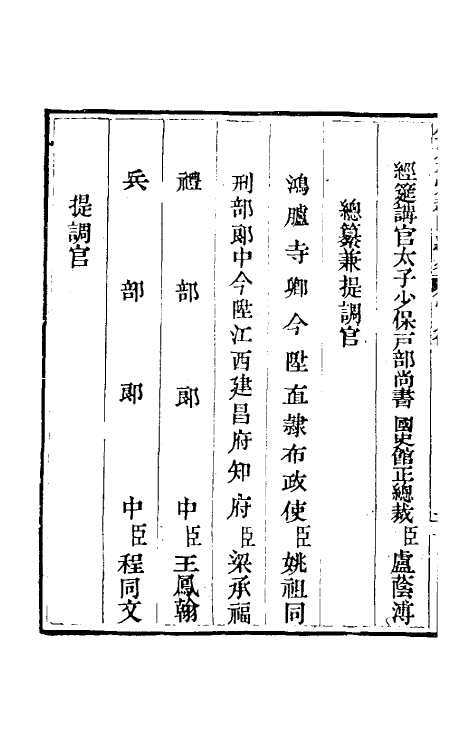 經筵講官太子少保戶部尚書 國史館正總裁臣盧蔭溥
總纂兼提調官
鴻臚寺卿今陞直隸布政使臣姚祖同
刑部郞中今陞江西建昌府知府臣梁承福
禮部郞中臣王鳳翰
兵部郞中臣程同文
提調官